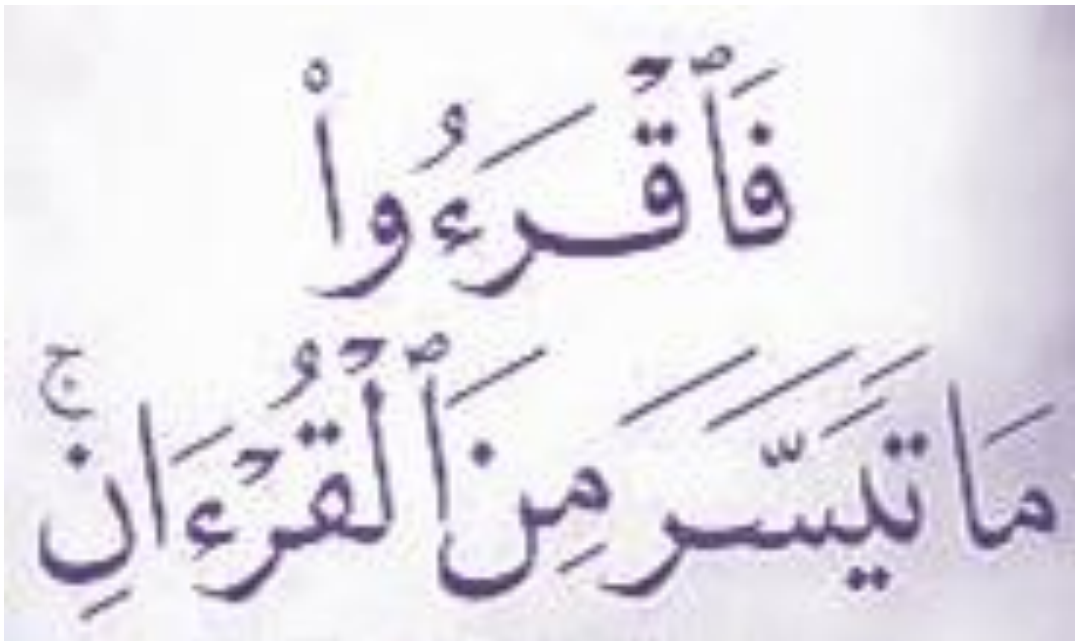 فَٱقْرَءُوا۟
مَا تَيَسَّرَ مِنَ ٱلْقُرْءَانِ ۚ